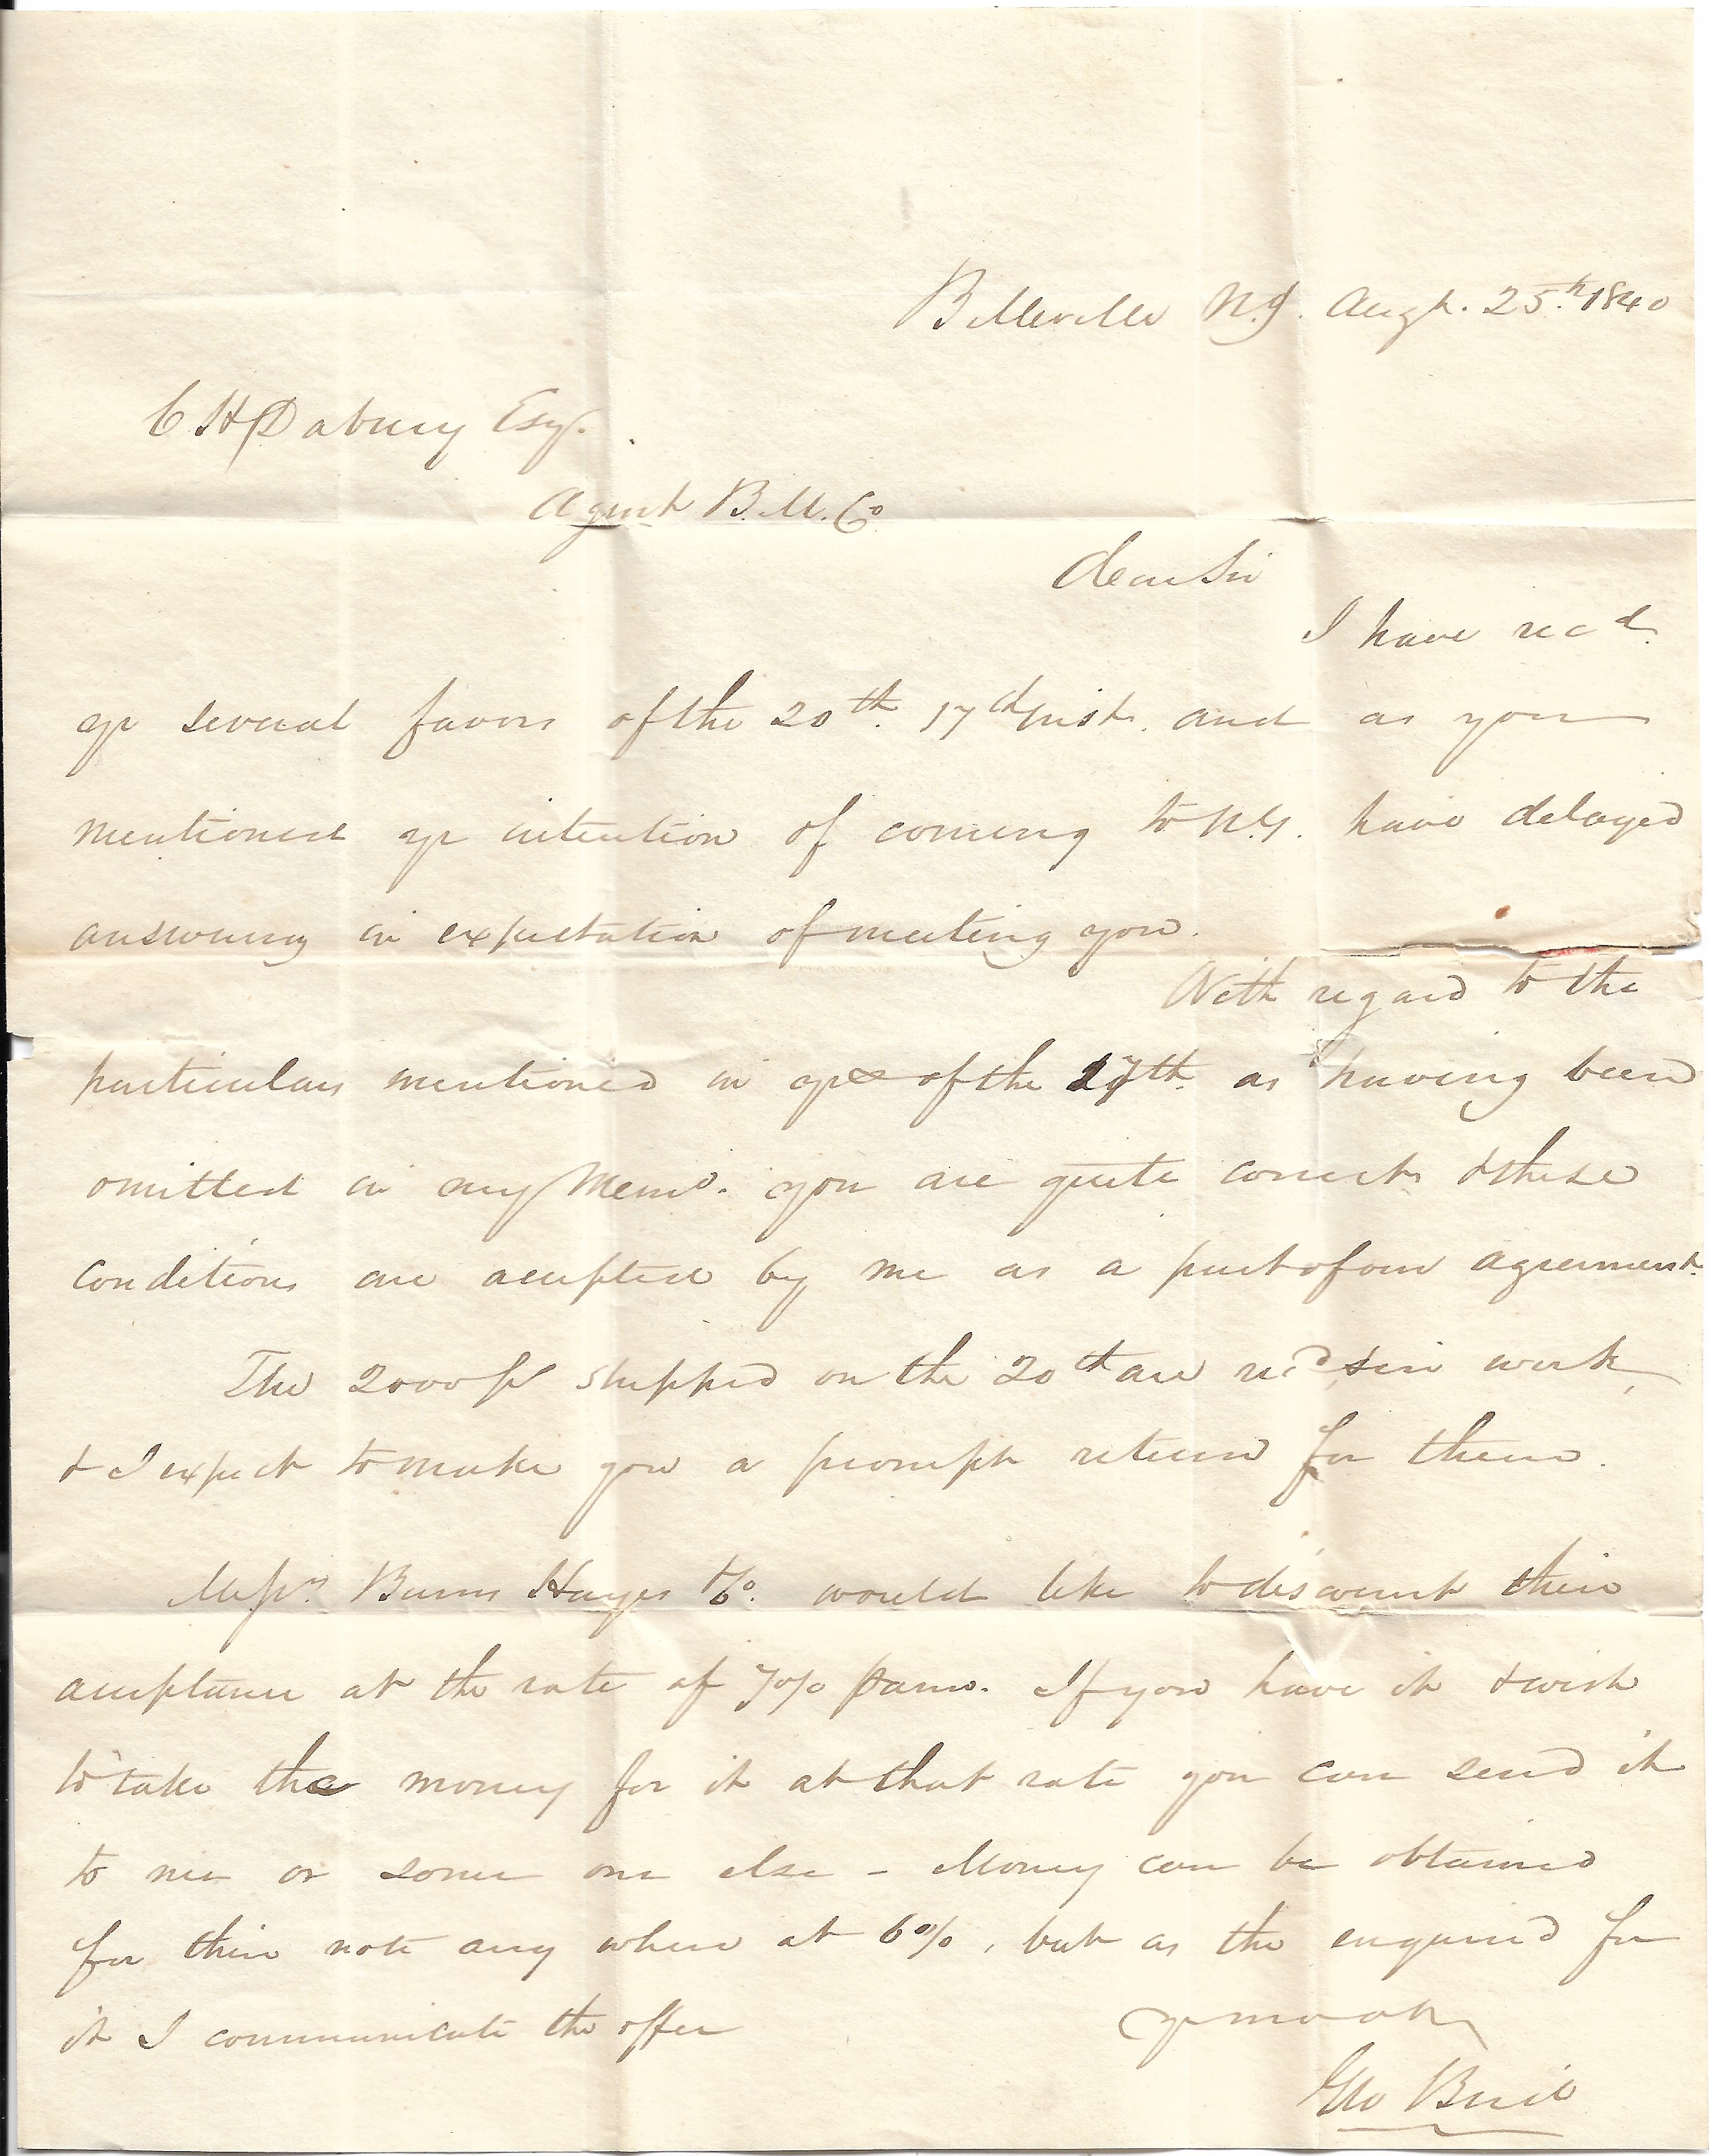 Belleville N.J. Augt. 25th 1840
C H Dabney Esqr.
Agent B.M. Co
Dear Sir
I have recd.
yr several favors of the 20th. 17th inst. and as you
mentioned yr intention of coming to N.Y. have delayed
answering in expectation of meeting you.
With regard to the
particulars mentioned in yrs of the 17th. as having been
omitted in my Memo. you are quite correct & these
conditions are accepted by me as a part of our agreement.
The 2000 ps shipped on the 20th are recd & in work,
& I expect to make you a prompt return for them.
Messrs. Burns Hayes & Co. would like to discount their
acceptance at the rate of 7% p ann. If you have it & wish
to take the money for it at that rate you can send it
to me or some one else - Money can be obtained
for their note any where at 6%, but as the enquired for
it I communicate the offer
Geo